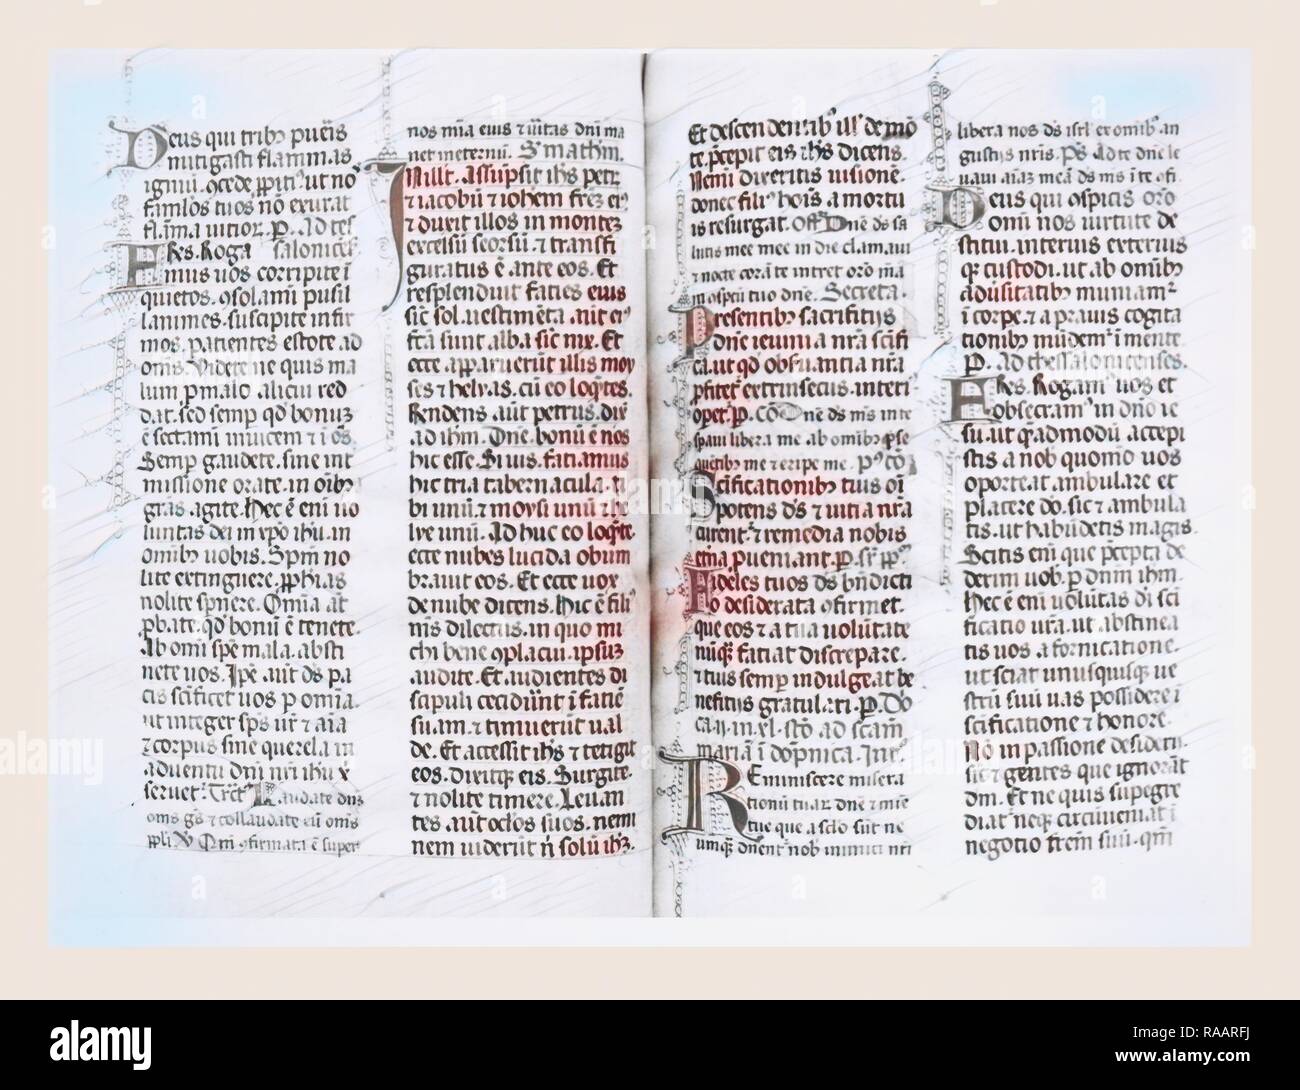 Deus qui trib9 pueris
mitigasti flammas
igniũ. ꝯcede ꝓpiti9. ut nos
famłos tuos nõ exurat
flãma uitior. P. ad tes
Frs. Roga salonicẽs
mus uos corripite ĩ
quietos. ꝯsolami pusil
lanimes. suscipite infir
mos. patientes estote ad
om̃s. Videte ne quis ma
lum ꝑ malo alicui red
dat. sed semꝑ qd bonuꝫ
ẽ sectami inuicem ⁊ ĩ om̃s.
Semꝑ gaudete. sine int
missione orate. in oĩbꝫ
gras agite. Hec ẽ eni uo
luntas dei in xp̃o ihu. in
omibꝫ uobis. Spm̃ no
lite extinguere. ꝓphias
nolite spnere. Om̃ia at
ꝓbate. qd bonũ ẽ tenete.
Ab omi spẽ mala. absti
nete uos. Ipẽ aut ds pa
cis scificet uos ꝑ om̃ia.
ut integer sps ur̃ ⁊ aĩa
⁊ corpus sine querela in
aduentu dñi nr̃i ihu x
seruet. Tct9 Laudate dñm
oms gẽs ⁊ collaudate eũ om̃s
ppłi. V Qm̃ ꝯfirmata ẽ super
nos mĩa eius ⁊ uĩtas dñi ma
net in eternũ. S matħm.
IN illt. Assũpsit ihs petr
⁊ iacobũ ⁊ iohem frez ei9
⁊ duxit illos in monteꝫ
excelsũ seorsũ. ⁊ transfi
guratus ẽ ante eos. Et
resplenduit facies eius
sic̃ sol. uestimẽta aut ei9
fc̃a sunt alba sic̃ nix. Et
ecce apparuerũt illis moy
ses ⁊ helyas. cũ eo loqẽtes.
Rñdens aũt petrus. dix
ad ihm. Dñe. bonũ e nos
hic esse. Si uis. faciamus
hic tria tabernacula. ti
bi unũ. ⁊ moysi unũ ⁊ he
lye unũ. Ad huc eo loqẽte.
ecce nubes lucida obum
brauit eos. Et ecce uox
de nube dicens. Hic ẽ fili9
m̃s dilectus. in quo mi
chi bene ꝯplacui. ipsuꝫ
audite. Et audientes di
scipuli ceciderũt ĩ faciẽ
suam. ⁊ timuerũt ual
de. Et accessit ihs ⁊ tetigit
eos. dixitqꝫ eis. Surgite.
⁊ nolite timere. Leuan
tes. aũt oc̃los suos. nemi
nem uiderũt ñ solũ ihꝫ.
Et descendentib9 ill̃ de mõ
te. p̃cepit eis ihs dicens.
Nemĩ dixeritis uisionẽ.
donec fili9 hoĩs a mortu
is resurgat. Off Dñe ds sa
lutis mee in die clamaui
⁊ nocte corã te intret orõ ma
in ꝯspcũ tuo dñe. Secreta.
Presentibꝫ sacrificijs
dñe ieiunia nr̃a scĩfi
ca. ut qd obſuantia nr̃a
ꝓfitet extrinsecus. interi9
oꝑet. P. Cõ Dñe ds m̃s in te
spaui libera me ab omĩbꝫ ꝑse
quentibꝫ me ⁊ eripe me. P9 cõ
Scĩficationibꝫ tuis om̃
potens ds ⁊ uitia nr̃a
curent. ⁊ remedia nobis
etna ꝓueniant. P. Sr̃ ppłm
Fideles tuos ds bñdicti
o desiderata ꝯfirmet.
que eos ⁊ a tua uolũtate
nũqꝫ faciat discrepare.
⁊ tuis semꝑ indulgeat be
neficijs gratulari. P. Dõ
ca. ij. in xl. Stõ ad scam
mariã ĩ dop̃nica. Int9
Reminiscere misera
tionũ tuaꝝ dñe ⁊ mie
tue que a sclo sũt ne
umqꝫ dñent nob inimici nr̃i
libera nos ds isrl ex omĩbꝫ an
gustijs nr̃is. Ps Ad te dñe le
uaui aĩaꝫ meã ds m̃s ĩ te ꝯfi.
Deus qui ꝯspicis om̃
omi nos uirtute de
stitui. interius exterius
qꝫ custodi. ut ab omĩbꝫ
aduersitatibꝫ muniamur
ĩ corpe. ⁊ a prauis cogita
tionibꝫ mũdem9 ĩ mente
P. ad thessalonicenses.
Frs. Rogam9 uos et
obsecram9 in dño ie
su. ut qẽadmodũ accepi
stis a nob quomo uos
oporteat ambulare et
placere do. sic ⁊ ambula
tis. ut habũdetis magis.
Scitis eni que p̃cepta de
derim uob. ꝑ dnm̃ ihm.
Hec ẽ eni uolũtas di sci
ficatio ur̃a. ut abstinea
tis uos a fornicatione.
ut sciat unusquisqꝫ ue
strũ suũ uas possidere ĩ
scĩficatione ⁊ honore.
Nõ in passione desiderij.
sic ⁊ gentes que ignorãt
dm. Et ne quis supegre
diat. neqꝫ circũueniat ĩ
negotio frẽm suũ. qm̃
alamy
Image ID: RAARFJ
www.alamy.com